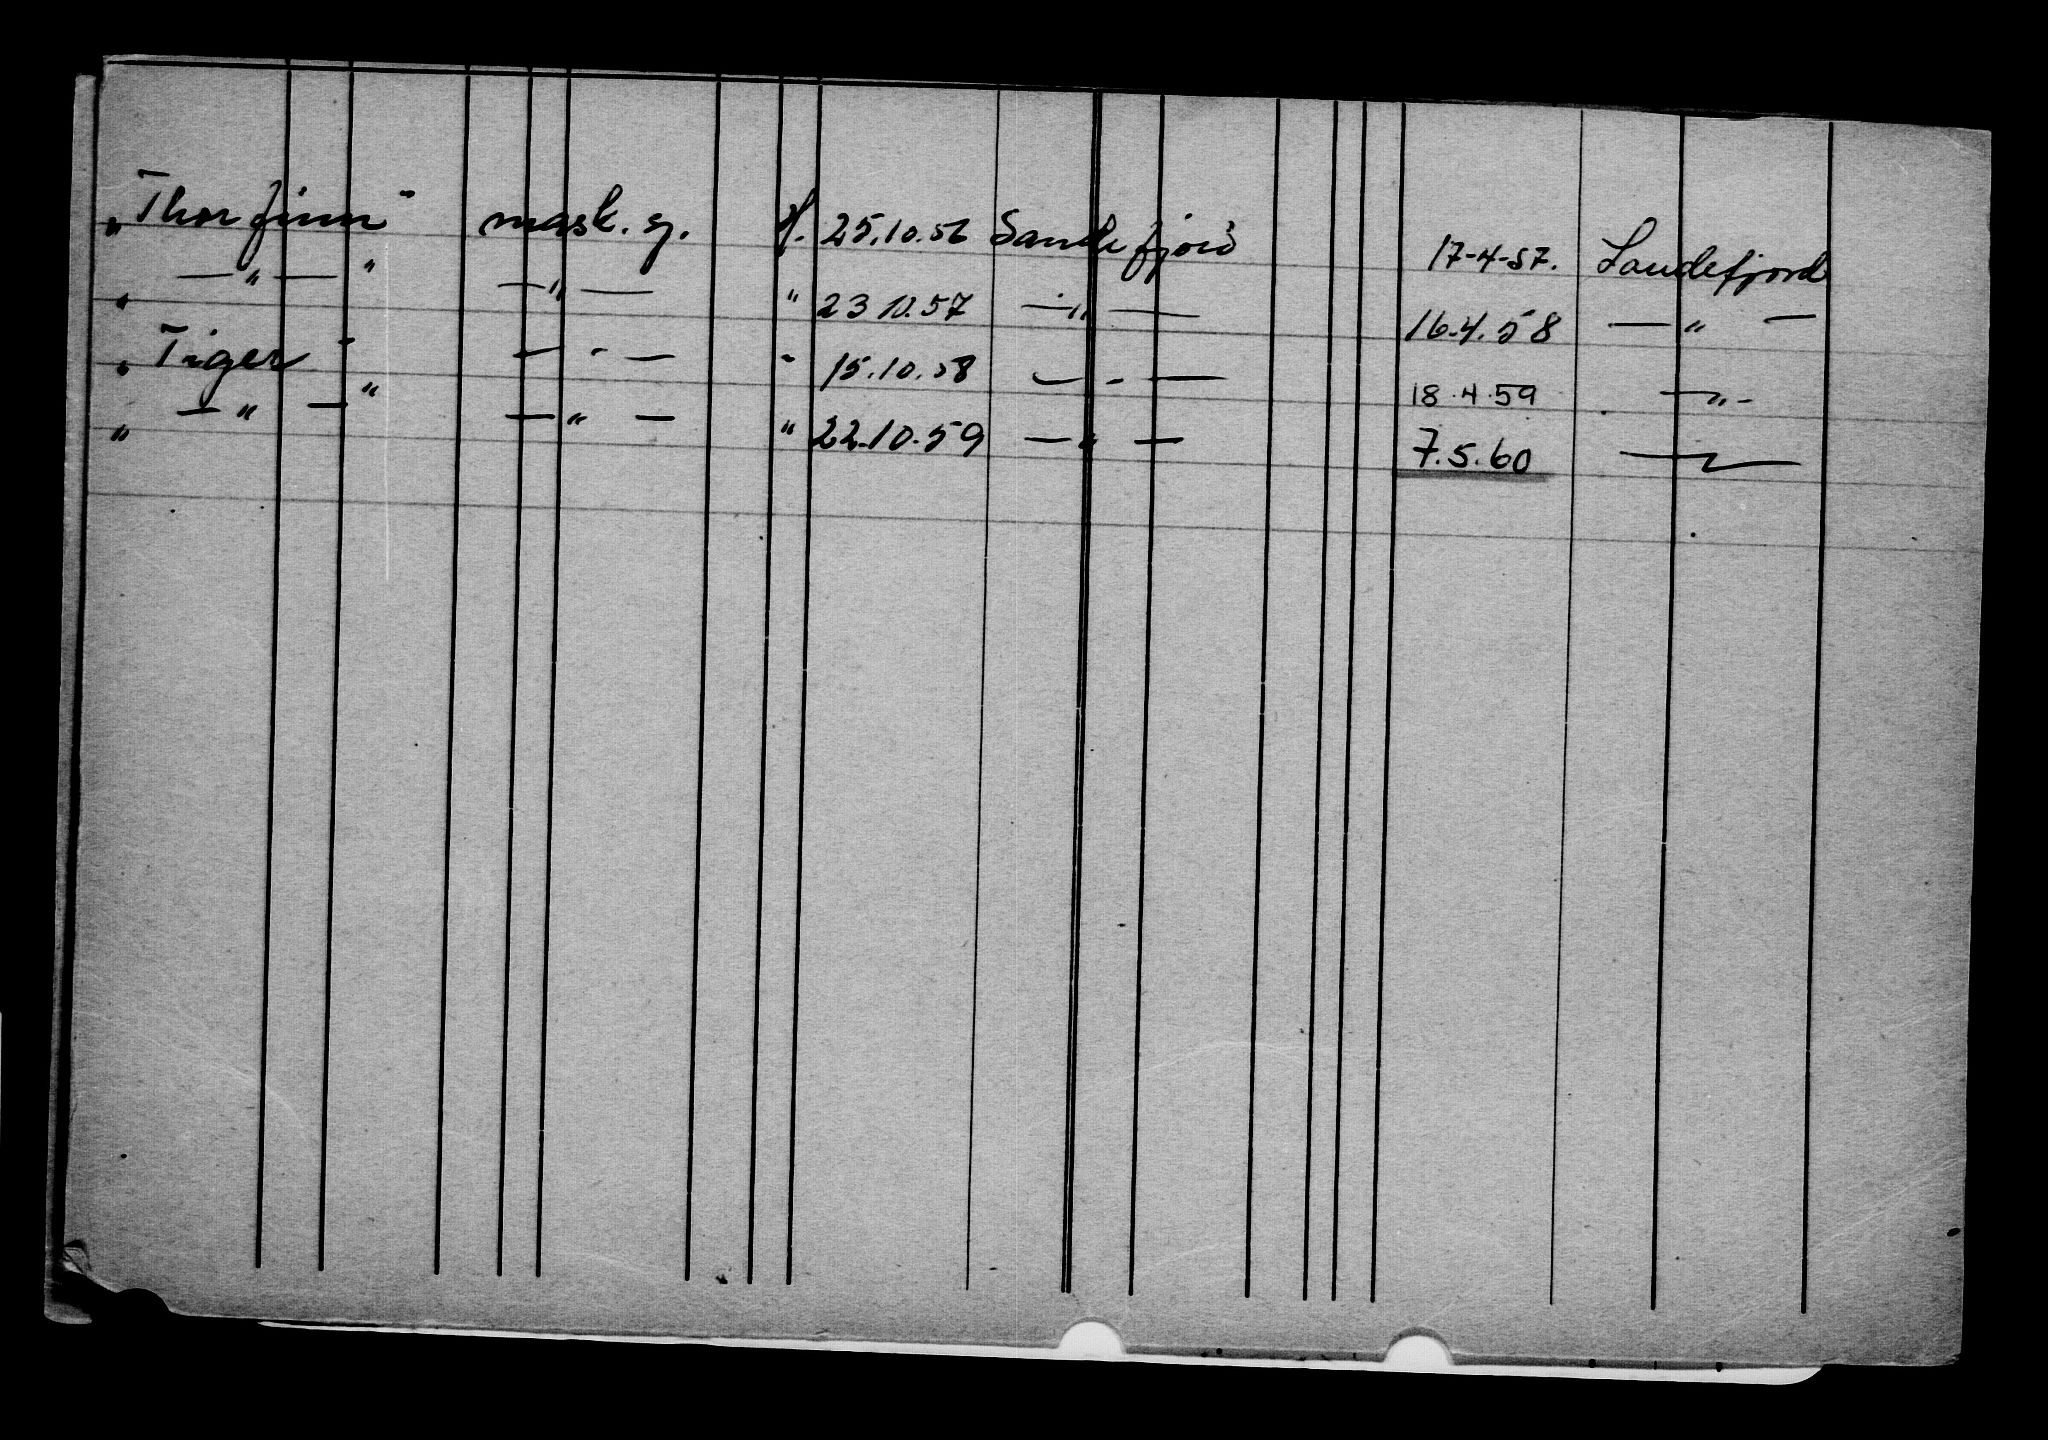 „Thorfinn" mask. sj. H. 25.10.56 Sandefjord 17-4-57. Sandefjord
„ —„— " —„— " 23 10.57 —„— 16.4.58 —„—
„Tiger" — " — " 15.10.58 — " — 18.4.59 —„—
„ —„— " —„— " 22.10.59 —„— 7.5.60 —„—